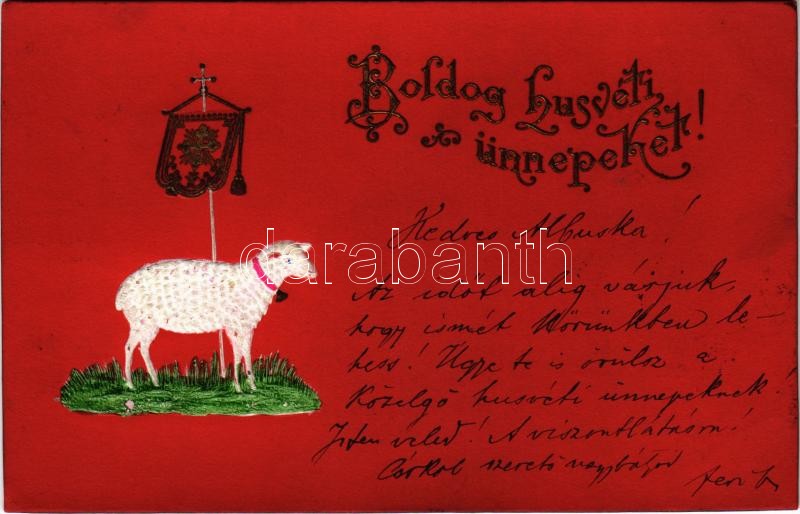 Boldog husvéti
ünnepeket!
Kedves Albuska!
darabanth
Az időt alig várjuk,
hogy ismét körünkben le-
hess! Ugye te is örülsz a
közelgő husvéti ünnepeknek!
Isten veled! A viszontlátásra!
Csókol szerető nagybátyád
Feri b.